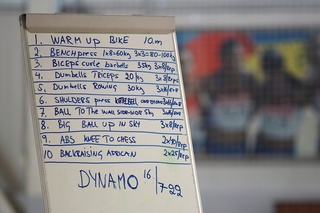 1. WARM UP BIKE 10m
2. BENCHpress 1x8=60kg 3x3=80-100kg
3. BICEPS curle barbells 35kg 3x8/rep
4. Dumbells TRICEPS 20/kg 3x8/rep
5. Dumbells ROWING 30kg 3x8/rep
6. SHOULDERS press KETTLEBELL
7. BALL TO THE WALL SIDE-SIDE 5kg
8. BIG BALL UP IN SKY 3x8/rep
9. ABS KNEE TO CHESS 2x40/rep
10 BACKRAISING 2x25/rep
DYNAMO 16/7-22